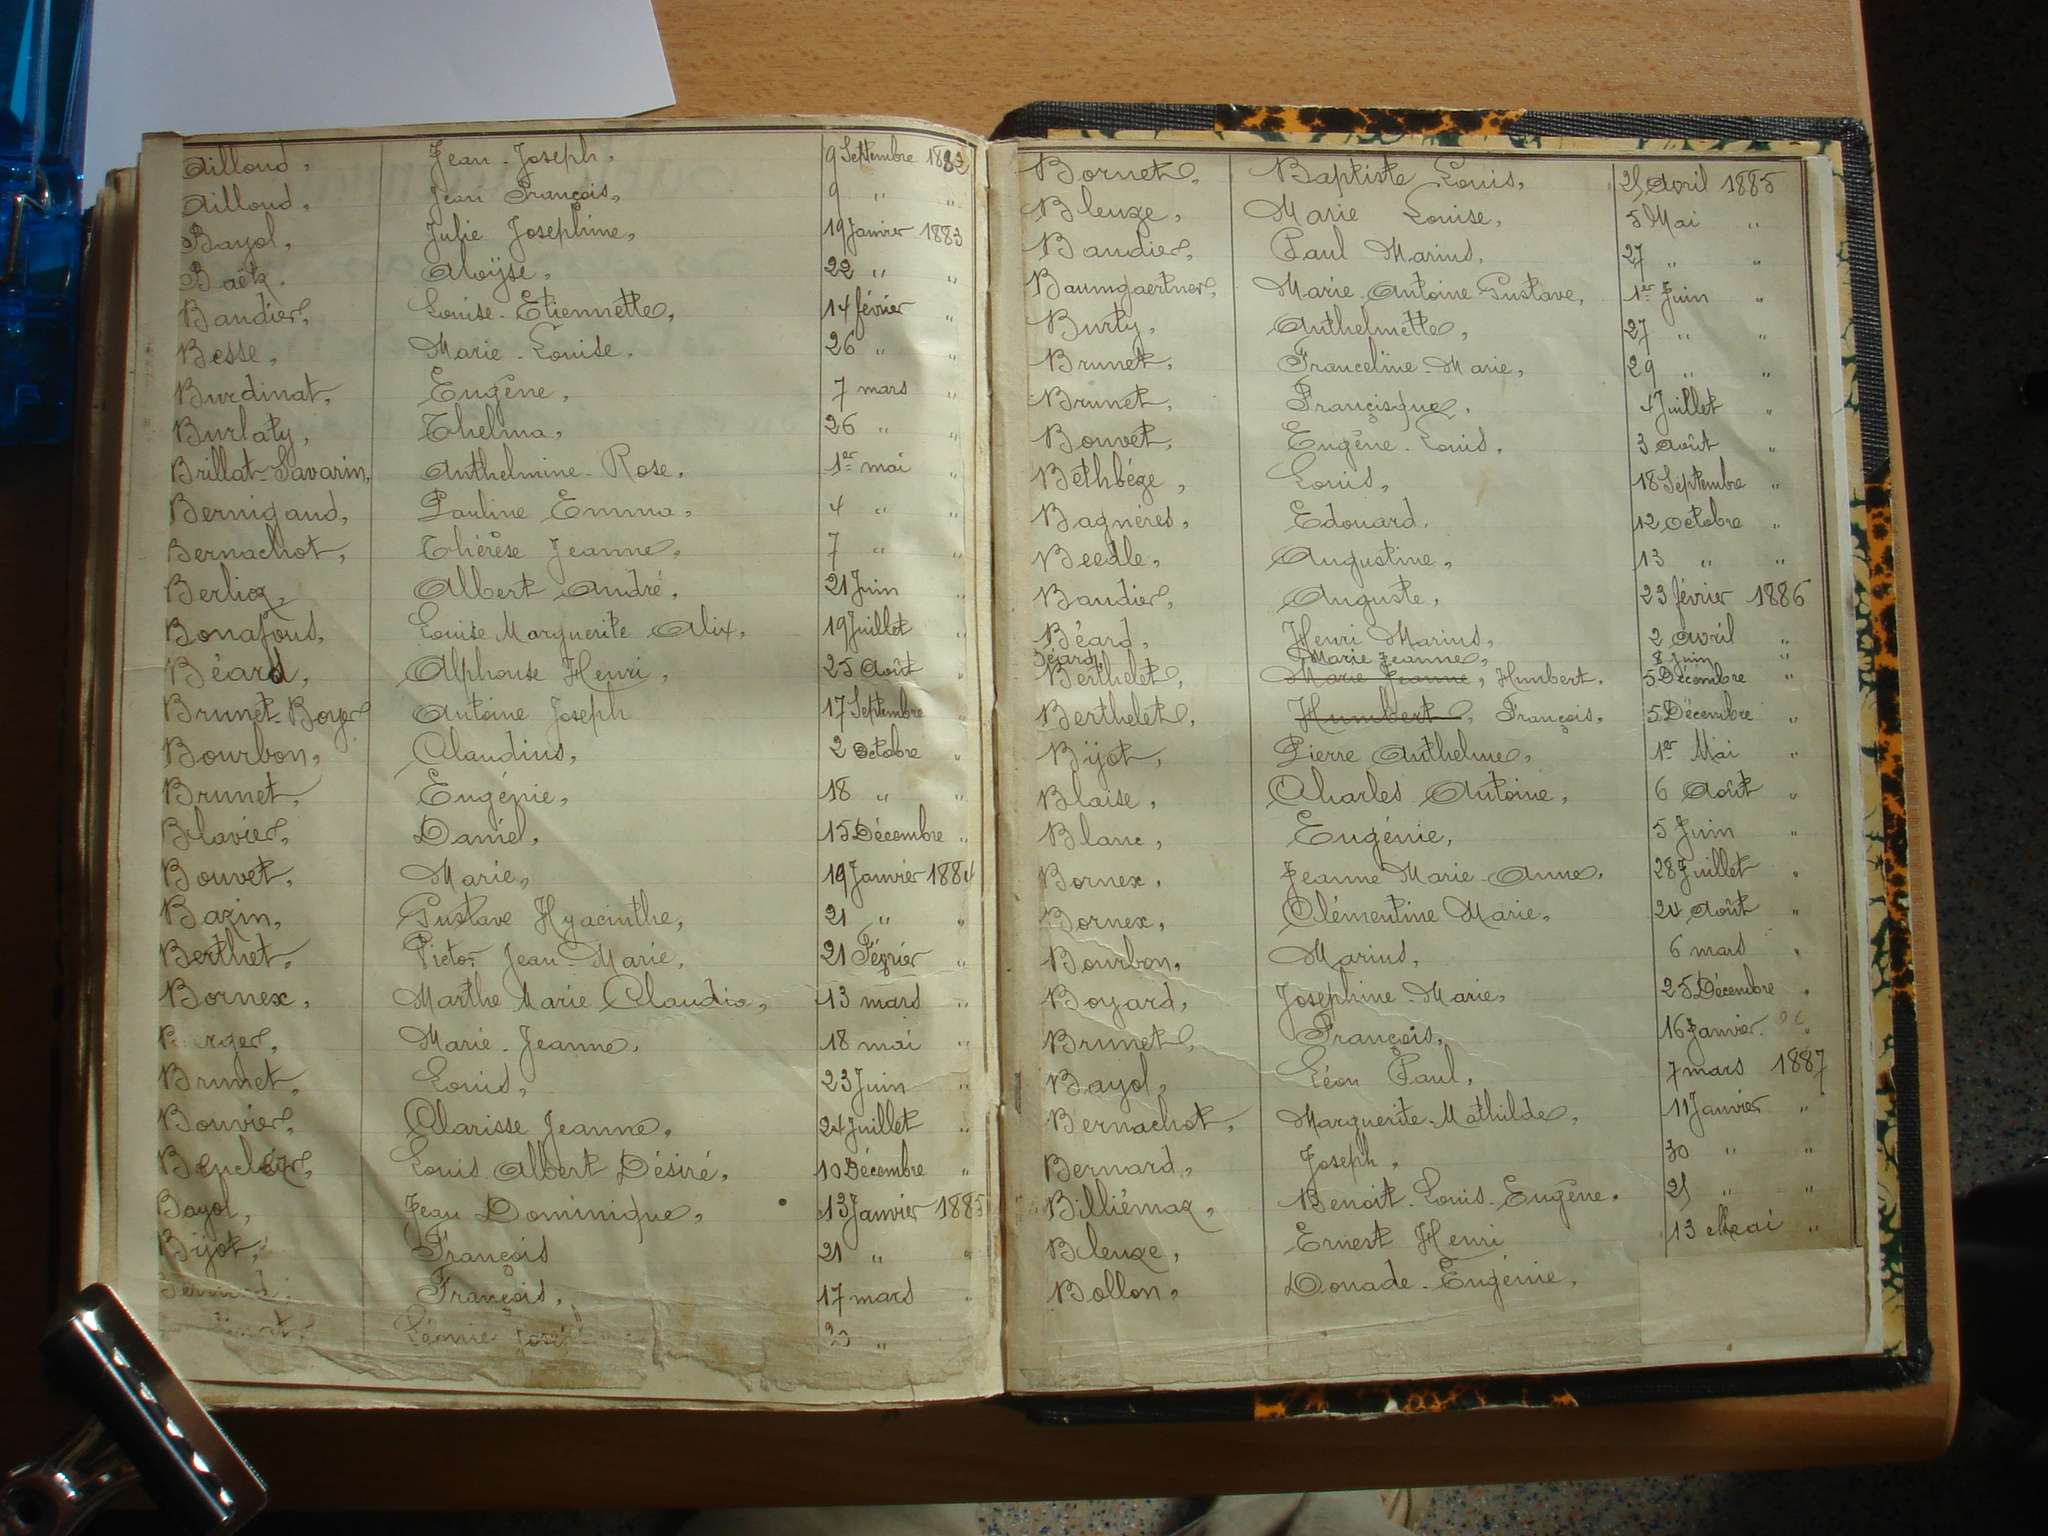 Ailloud, Jean-Joseph, 9 Septembre 1882
Ailloud, Jean François, 9 " "
Bayol, Julie Josephine, 19 Janvier 1883
Baëtz, Aloÿse, 22 " "
Baudier, Louise-Etiennette, 14 février "
Besse, Marie-Louise, 26 " "
Burdinat, Eugène, 7 mars "
Burlaty, Thelma, 26 " "
Brillat-Savarin, Anthelmine-Rose, 1er mai "
Bernigaud, Pauline Emma, 4 " "
Bernachot, Thérèse Jeanne, 7 " "
Berlioz, Albert André, 21 Juin "
Bonafous, Louise Marguerite Alix, 19 Juillet "
Béard, Alphonse Henri, 25 Août "
Brunet-Boyer Antoine Joseph 17 Septembre "
Bourbon, Claudius, 2 Octobre "
Brunet, Eugénie, 18 " "
Blavier, Daniel, 15 Décembre "
Bouvet, Marie, 19 Janvier 1884
Bazin, Gustave Hyacinthe, 21 " "
Berthet, Victor Jean-Marie, 21 Février "
Bornex, Marthe Marie Claudia, 13 mars "
Marie-Jeanne, 18 mai "
Brunet, Louis, 23 Juin "
Bouvier, Clarisse Jeanne, 24 Juillet "
Louis Albert Désiré, 10 Décembre "
Bayol, Jean Dominique, 13 Janvier 1885
Bijot, François 21 " "
François, 17 mars "
Léonie "
Bornet, Baptiste Louis, 25 Avril 1885
Bleuze, Marie Louise, 5 Mai "
Baudier, Paul Marius, 27 " "
Baumgaertner, Marie-Antoine-Gustave, 1er Juin "
Burty, Anthelmette, 27 " "
Brunet, Franceline-Marie, 29 " "
Brunet, Françisque, 4 Juillet "
Bouvet, Eugène-Louis, 3 Août "
Bethbéze, Louis, 18 Septembre "
Bagnéres, Edouard, 12 Octobre "
Beedle, Augustine, 13 " "
Baudier, Auguste, 23 février 1886
Béard, Henri Marius, 2 Avril "
Béard, Marie Jeanne, 8 Juin "
Berthelet, Marie Jeanne, Humbert. 5 Décembre "
Berthelet, Humbert, François. 5 Décembre "
Bijot, Pierre Anthelme, 1er Mai "
Blaise, Charles Antoine, 6 Août "
Blanc, Eugénie, 5 Juin "
Bornex, Jeanne Marie-Anne, 28 Juillet "
Bornex, Clémentine Marie, 24 Août "
Bourbon, Marius, 6 mars "
Boyard, Josephine-Marie, 25 Décembre "
Brunet, François, 16 Janvier "
Bayol, Léon Paul, 7 mars 1887
Bernachot, Marguerite-Mathilde, 11 Janvier "
Bernard, Joseph, 30 " "
Billiémaz, Benoit-Louis-Eugène. 21 " "
Bleuze, Ernest Henri 13 Mai "
Bollon, Donade-Eugénie,